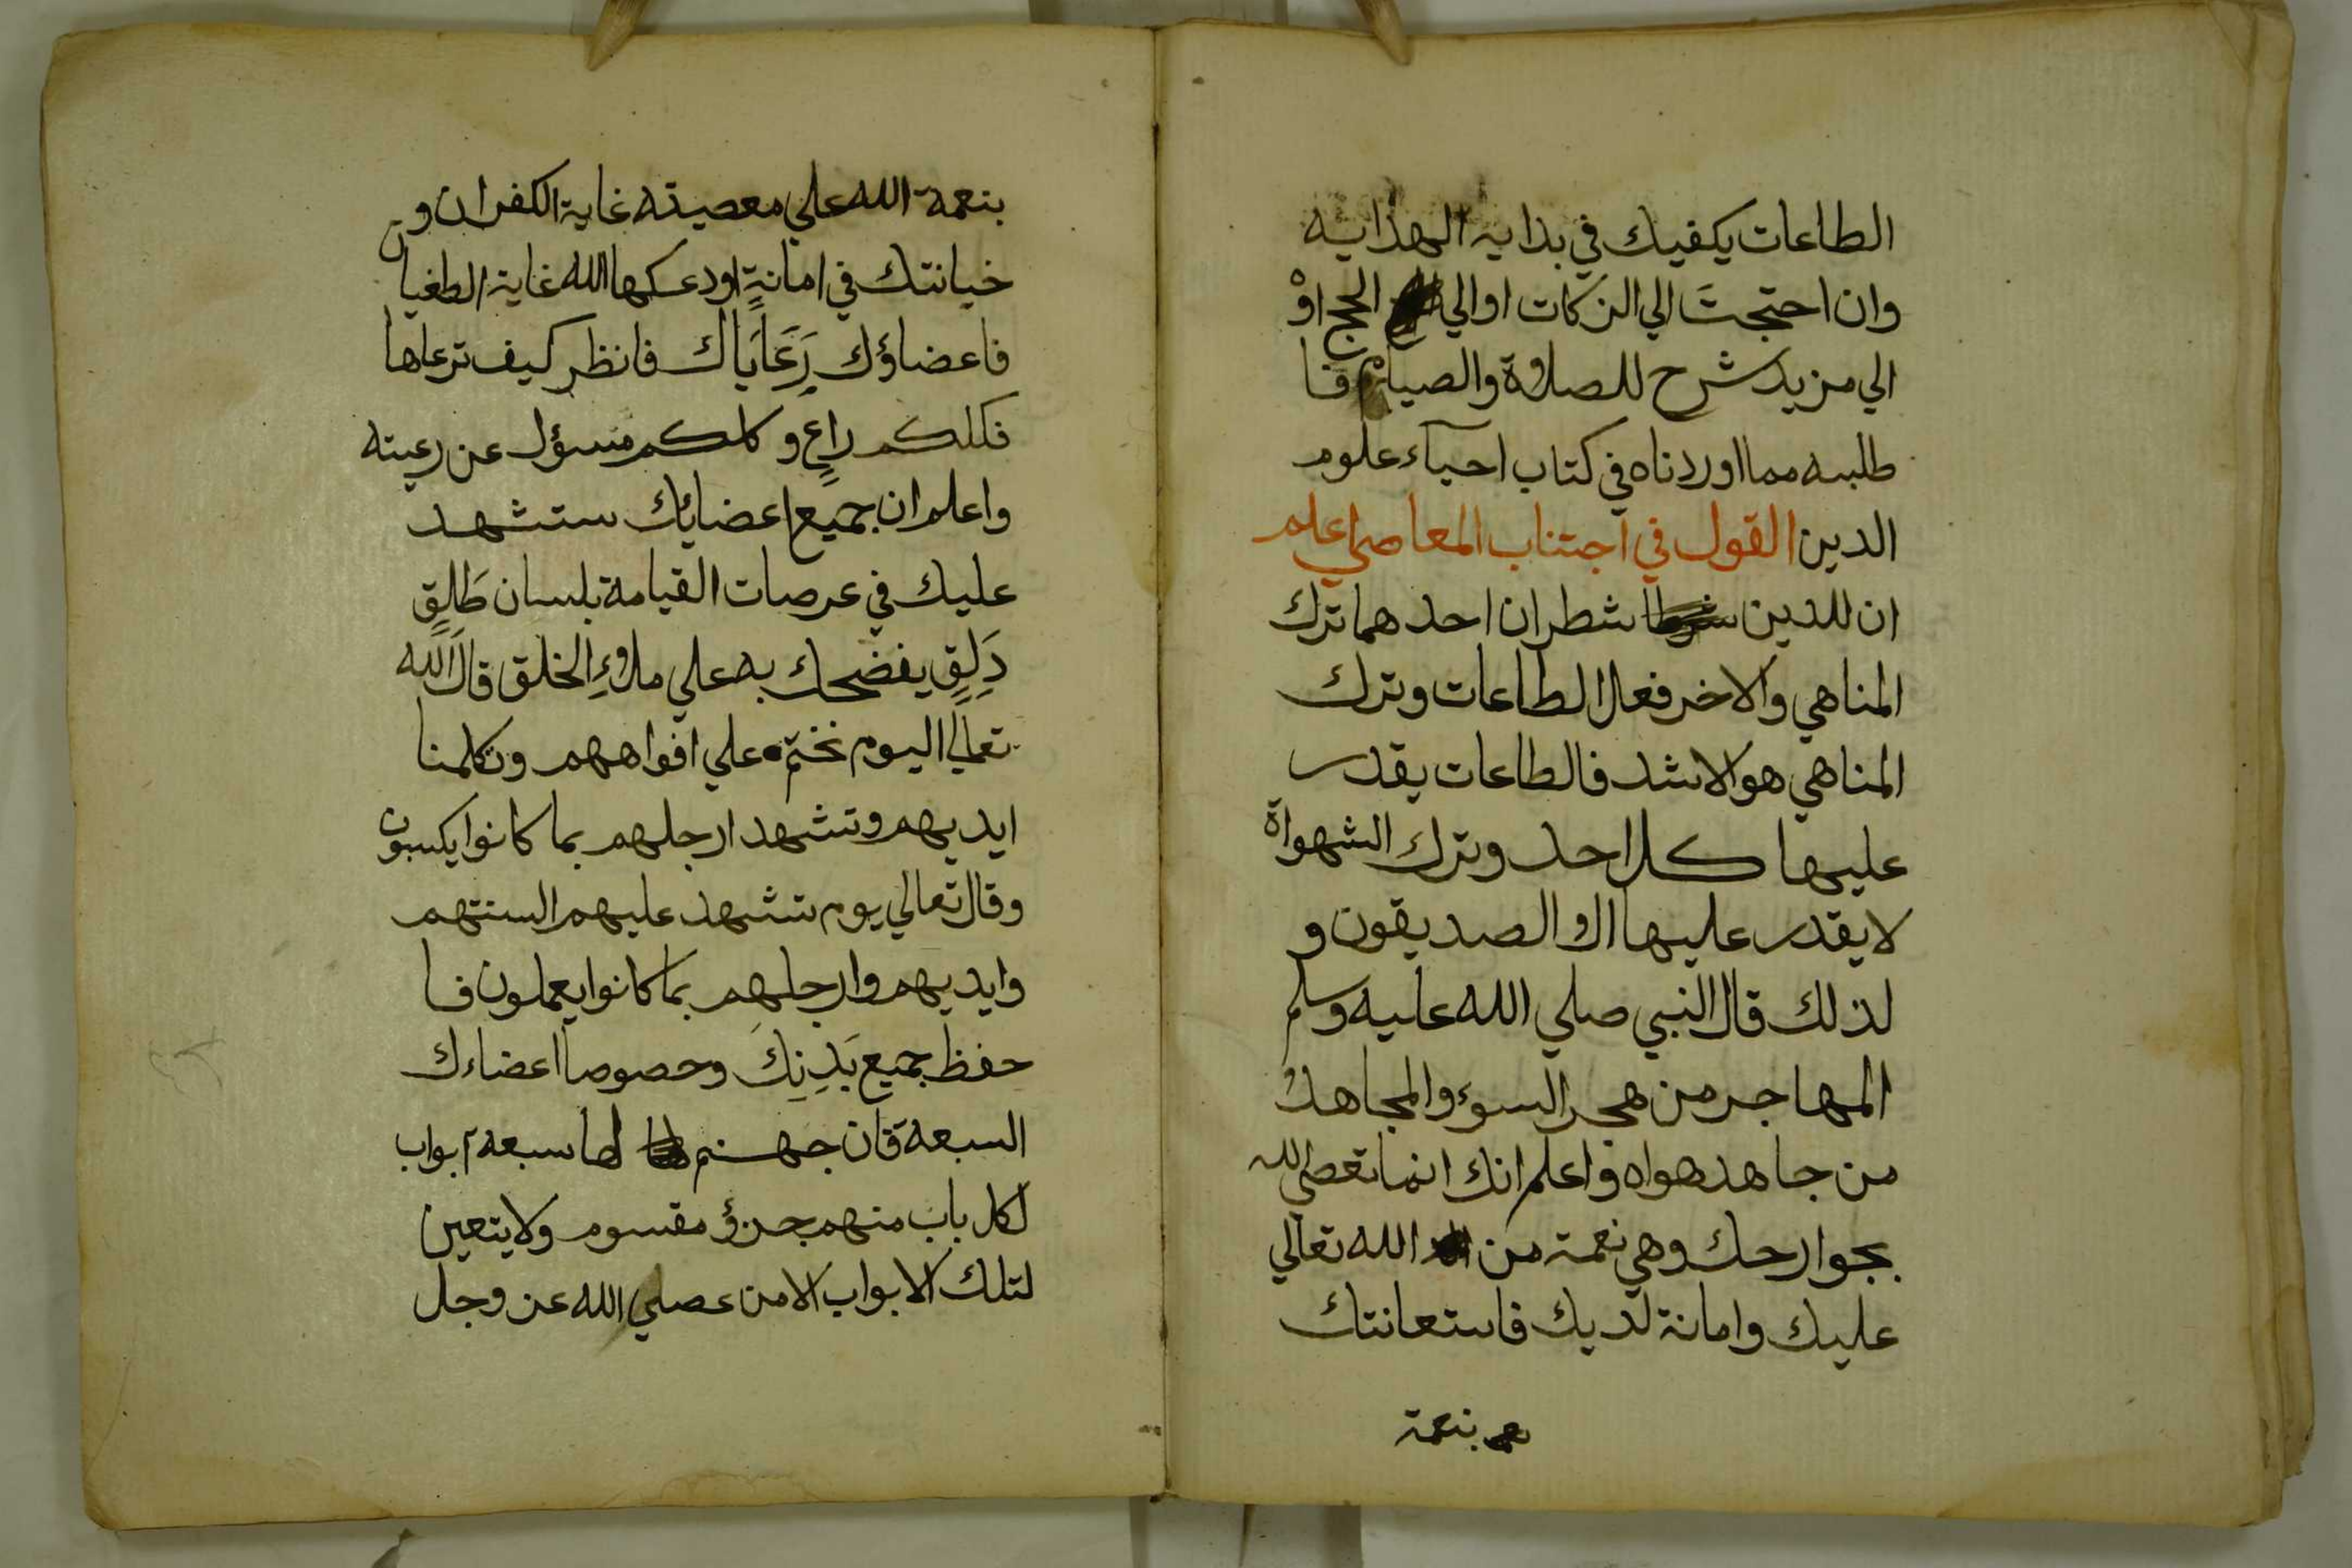 الطاعات يكفيك في بداية الهداية
وان احتجتَ الي الزكات او الي الحج اوْ
الي مزيد شرح للصلوة والصيام فا
طلبه مما اوردناه في كتاب احيآء علوم
الدين القول في اجتناب المعاصي اعلم
ان للدين شطران احدهما ترك
المناهي والاخر فعل الطاعات وترك
المناهي هو الاشد فالطاعات يقدر
عليها كل احد وترك الشهواة
لا يقدر عليها الا الصديقون و
لذلك قال النبي صلي الله عليه وسلم
المهاجر من هجر السوء والمجاهدُ
من جاهد هواه واعلم انك انما تعصي لله
بجوارحك وهي نعمة من الله تعالي
عليك وامانة لديك فاستعانتك
بنعمة
بنعمة الله علي معصيته غاية الكفران و
خيانتك في امانةٍ اودعكها الله غاية الطغيان
فاعضاؤك رَعَايَاك فانظر كيف ترعاها
فكلكم راعٍ وكلكم مسؤل عن رعيته
واعلم ان جميع اعضائك ستشهد
عليك في عرصات القيامة بلسان طَلِقٍ
دَلِقٍ يفضحك به علي ملاءِ الخلق قال الله
تعالي اليوم نختم علي افواههم وتكلمنا
ايديهم وتشهد ارجلهم بما كانوا يكسبون
وقال تعالي يوم تشهد عليهم السنتهم
وايديهم وارجلهم بما كانوا يعملون فا
حفظ جميع بَدَنِكَ وخصوصا اعضاءك
السبعة فان جهنم لها سبعة ابواب
لكل باب منهم جزؤ مقسوم ولا يتعين
لتلك الابواب الا من عصي الله عز وجل